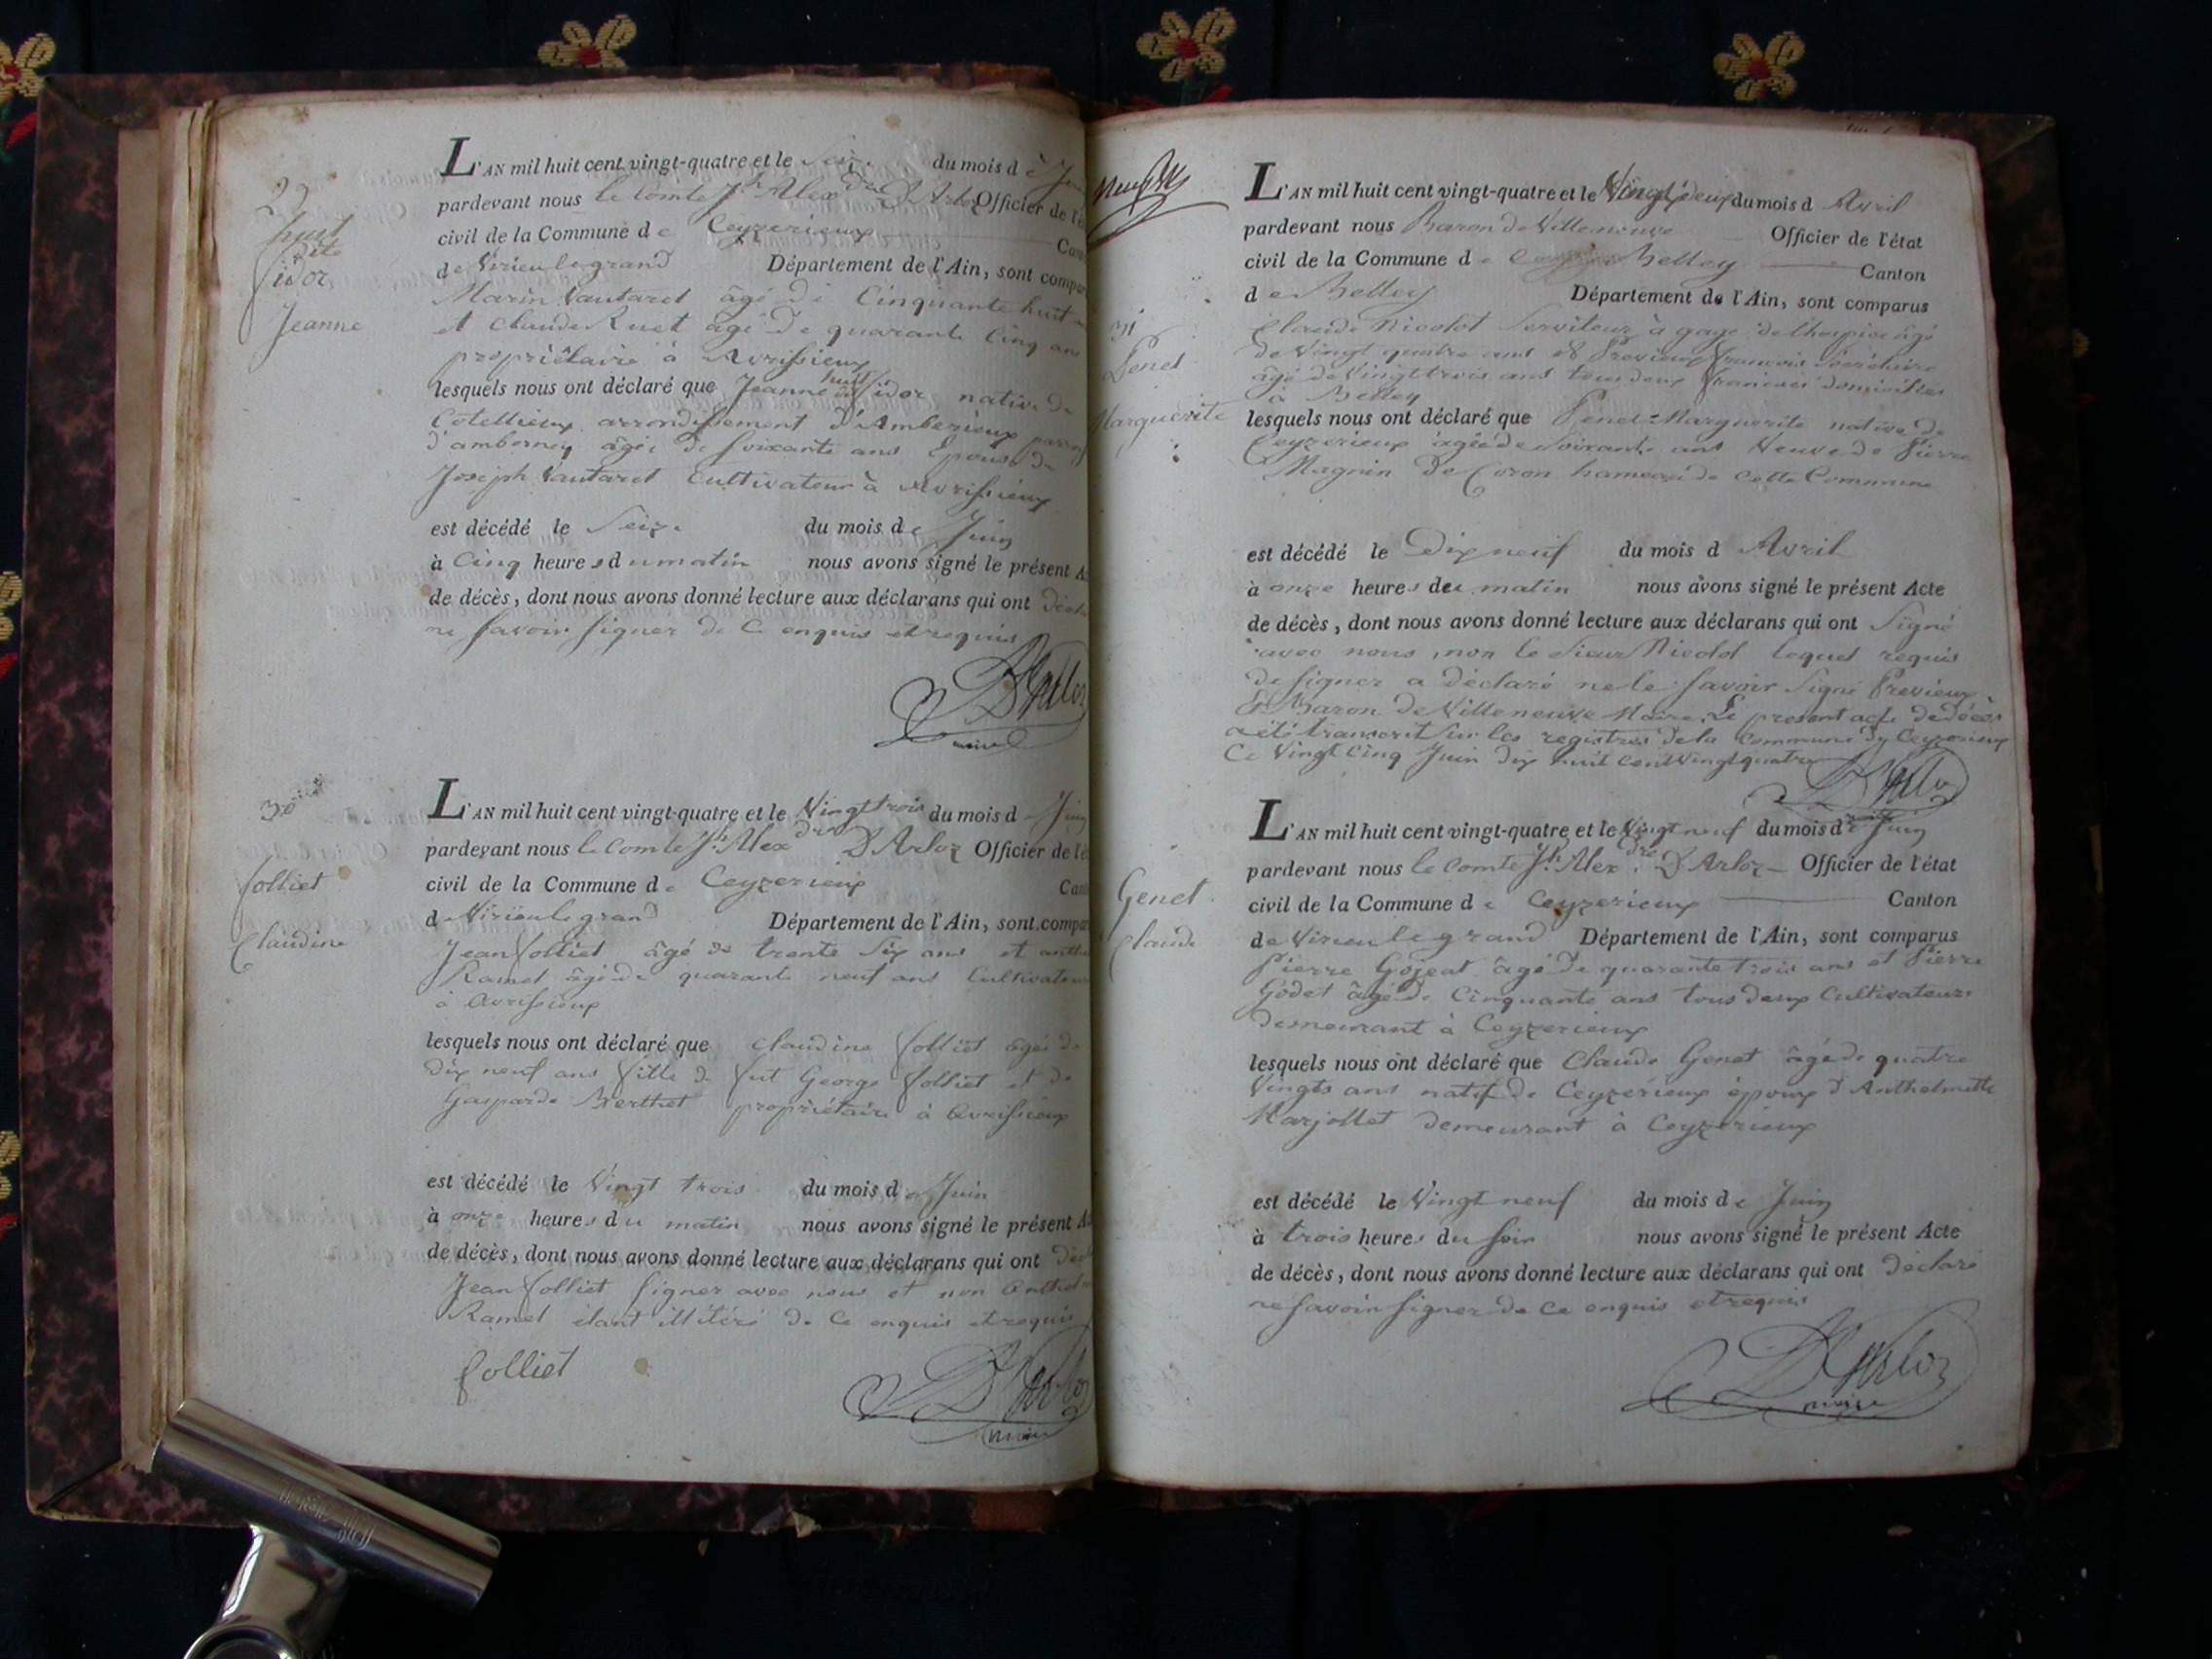 29
huit
dite
Sidor
Jeanne
L'AN mil huit cent vingt-quatre et le Seize du mois de
pardevant nous le Comte Jh Alexdre D'Arloz Officier de l'é
civil de la Commune de Ceyzerieux
de Virieu le grand Département de l'Ain, sont compa
Marin Vautaret âgé de Cinquante huit
et Claude Ruet âgé de quarante Cinq ans
propriétaire à Avrissieux
lesquels nous ont déclaré que Jeanne huit dite Sidor native de
Cotellieux arrondissement d'Amberieux
d'ambornay âgée de soixante ans Epouse de
Joseph Vautaret Cultivateur à Avrissieux
est décédé le Seize du mois de Juin
à Cinq heures du matin nous avons signé le présent A
de décès, dont nous avons donné lecture aux déclarans qui ont
ne savoir signer de ce enquis et requis
D'Arloz
maire
30
Folliet
Claudine
L'AN mil huit cent vingt-quatre et le Vingt trois du mois de Juin
pardevant nous le Comte Jh Alexdre D'Arloz Officier de l'é
civil de la Commune de Ceyzerieux Can
de Virieu le grand Département de l'Ain, sont compa
Jean Folliet âgé de trente Six ans et anthe
Ramel âgé de quarante neuf ans Cultivateurs
à Avrissieux
lesquels nous ont déclaré que Claudine Folliet âgée de
dix neuf ans fille de fut George Folliet et de
Gasparde Berthet propriétaire à Avrissieux
est décédé le Vingt trois du mois de Juin
à onze heures du matin nous avons signé le présent A
de décès, dont nous avons donné lecture aux déclarans qui ont
Jean Folliet signer avec nous et non Anthel
Ramel étant illitéré de ce enquis et requis
folliet
D'Arloz
maire
31
Genet
Marguerite
L'AN mil huit cent vingt-quatre et le Vingt deux du mois d Avril
pardevant nous Baron de Villeneuve Officier de l'état
civil de la Commune de Belley Canton
de Belley Département de l'Ain, sont comparus
Claude Nicolot Serviteur à gage de l'hospice âgé
de Vingt quatre ans et Previeux François Secrétaire
âgé de Vingt trois ans tous deux Francais domiciliés
à Belley
lesquels nous ont déclaré que Genet Marguerite native de
Ceyzerieux âgée de Soixante ans Veuve de Pierre
Magnin de Coron hameau de cette Commune
est décédé le Dix neuf du mois d Avril
à onze heures du matin nous avons signé le présent Acte
de décès, dont nous avons donné lecture aux déclarans qui ont Signé
avec nous, non le Sieur Nicolot lequel requis
de signer a déclaré ne le savoir Signé Previeux
et Baron de Villeneuve Maire. Le present acte de décès
a été transcrit sur les registres de la Commune de Ceyzerieux
Ce Vingt Cinq Juin dix huit cent Vingt quatre
D'Arloz
Genet
Claude
L'AN mil huit cent vingt-quatre et le Vingt neuf du mois de Juin
pardevant nous le Comte Jh Alexdre D'Arloz Officier de l'état
civil de la Commune de Ceyzerieux Canton
de Virieu le grand Département de l'Ain, sont comparus
Pierre Gojeat âgé de quarante trois ans et Pierre
Godet âgé de Cinquante ans tous deux Cultivateurs
demeurant à Ceyzerieux
lesquels nous ont déclaré que Claude Genet âgé de quatre
Vingts ans natif de Ceyzerieux époux d'Anthelmette
Marjollet demeurant à Ceyzerieux
est décédé le Vingt neuf du mois de Juin
à trois heures du soir nous avons signé le présent Acte
de décès, dont nous avons donné lecture aux déclarans qui ont déclaré
ne savoir signer de ce enquis et requis
D'Arloz
maire